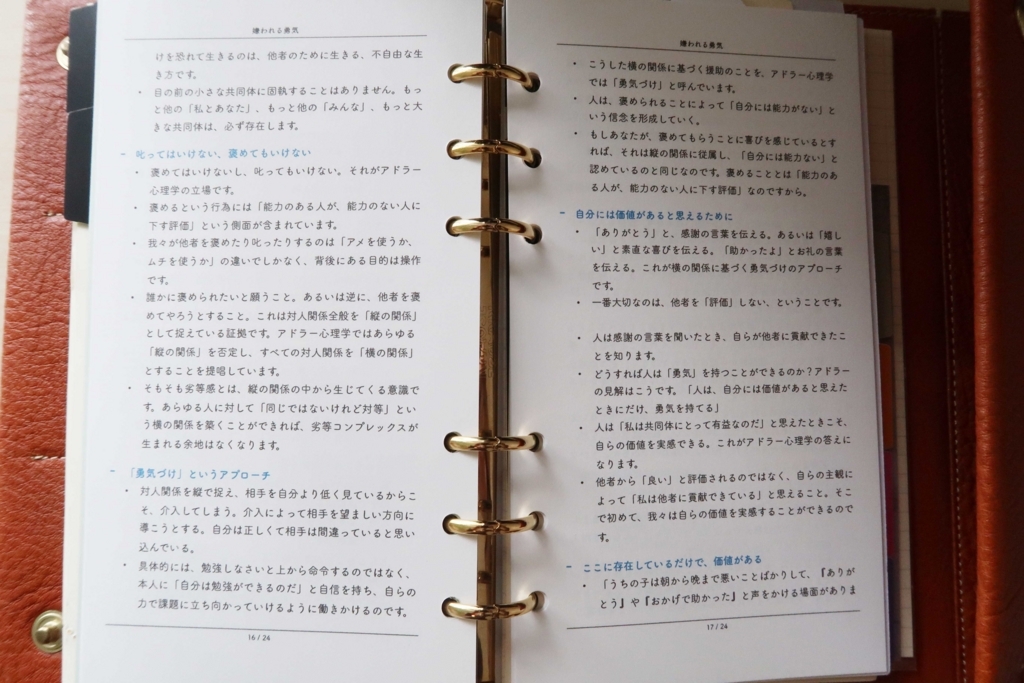 嫌われる勇気
けを恐れて生きるのは、他者のために生きる、不自由な生
き方です。
・ 目の前の小さな共同体に固執することはありません。もっ
と他の「私とあなた」、もっと他の「みんな」、もっと大
きな共同体は、必ず存在します。
− 叱ってはいけない、褒めてもいけない
・ 褒めてはいけないし、叱ってもいけない。それがアドラー
心理学の立場です。
・ 褒めるという行為には「能力のある人が、能力のない人に
下す評価」という側面が含まれています。
・ 我々が他者を褒めたり叱ったりするのは「アメを使うか、
ムチを使うか」の違いでしかなく、背後にある目的は操作
です。
・ 誰かに褒められたいと願うこと。あるいは逆に、他者を褒
めてやろうとすること。これは対人関係全般を「縦の関係」
として捉えている証拠です。アドラー心理学ではあらゆる
「縦の関係」を否定し、すべての対人関係を「横の関係」
とすることを提唱しています。
・ そもそも劣等感とは、縦の関係の中から生じてくる意識で
す。あらゆる人に対して「同じではないけれど対等」とい
う横の関係を築くことができれば、劣等コンプレックスが
生まれる余地はなくなります。
− 「勇気づけ」というアプローチ
・ 対人関係を縦で捉え、相手を自分より低く見ているからこ
そ、介入してしまう。介入によって相手を望ましい方向に
導こうとする。自分は正しくて相手は間違っていると思い
込んでいる。
・ 具体的には、勉強しなさいと上から命令するのではなく、
本人に「自分は勉強ができるのだ」と自信を持ち、自らの
力で課題に立ち向かっていけるように働きかけるのです。
16 / 24
嫌われる勇気
・ こうした横の関係に基づく援助のことを、アドラー心理学
では「勇気づけ」と呼んでいます。
・ 人は、褒められることによって「自分には能力がない」と
いう信念を形成していく。
・ もしあなたが、褒めてもらうことに喜びを感じているとす
れば、それは縦の関係に従属し、「自分には能力ない」と
認めているのと同じなのです。褒めることとは「能力のあ
る人が、能力のない人に下す評価」なのですから。
− 自分には価値があると思えるために
・ 「ありがとう」と、感謝の言葉を伝える。あるいは「嬉し
い」と素直な喜びを伝える。「助かったよ」とお礼の言葉
を伝える。これが横の関係に基づく勇気づけのアプローチ
です。
・ 一番大切なのは、他者を「評価」しない、ということです。
・ 人は感謝の言葉を聞いたとき、自らが他者に貢献できたこ
とを知ります。
・ どうすれば人は「勇気」を持つことができるのか？アドラー
の見解はこうです。「人は、自分には価値があると思えた
ときにだけ、勇気を持てる」
・ 人は「私は共同体にとって有益なのだ」と思えたときこそ、
自らの価値を実感できる。これがアドラー心理学の答えに
なります。
・ 他者から「良い」と評価されるのではなく、自らの主観に
よって「私は他者に貢献できている」と思えること。そこ
で初めて、我々は自らの価値を実感することができるので
す。
− ここに存在しているだけで、価値がある
・ 「うちの子は朝から晩まで悪いことばかりして、『ありが
とう』や『おかげで助かった』と声をかける場面がありま
17 / 24